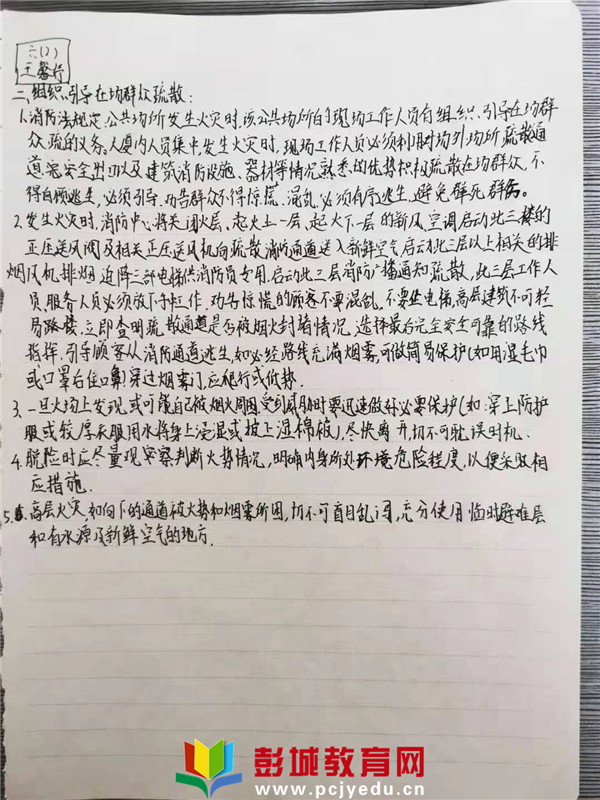 六(2)
王馨行
二、组织、引导在场群众疏散:
1.消防法规定:公共场所发生火灾时,该公共场所的现场工作人员有组织、引导在场群
众疏的义务。人员内人员集中,发生火灾时,现场工作人员必须利用对场列场所疏散通
道,安全出口以及建筑消防设施、器材等情况熟悉的优势积极疏散在场群众,不
得自顾逃生,必须引导、劝告群众不得惊慌、混乱,必须有序逃生,避免群死群伤。
2.发生火灾时,消防中心将关闭火层、起火上一层、起火下一层的新风,空调启动此三楼的
正压送风阀及相关正压送风机向疏散消防通道送入新鲜空气启动此三层以上相关的排
烟风机排烟,迫降三部电梯供消防员专用,启动此三层消防广播通知疏散,此三层工作人
员,服务人员必须放下手工作,劝告惊慌的顾客不要混乱。不要坐电梯,高层建筑不可轻
易跳楼,立即查明疏散通道是否被烟火封堵情况,选择最后完全安全可靠的路线
指挥,引导顾客从消防通道逃生,如必经路线充满烟雾,可做简易保护(如用湿毛巾
或口罩右住口鼻)穿过烟雾门,应爬行或低势.
3.一旦火场上发现或可能自己被烟火周围,受到威胁时要迅速做补必要保护(如:穿上防护
服或较厚衣服用水将身上浸湿或披上湿棉被),尽快离开,切不可耽误时机.
4.脱险时应尽量观察判断火势情况,明确内身所处环境危险程度,以便采取相
应措施.
5.高层火灾,如向下的通道被火势和烟雾所困,切不可盲目乱闯,充分使用临时避难层
和有水源及新鲜空气的地方.
彭城教育网
www.pcjyedu.cn